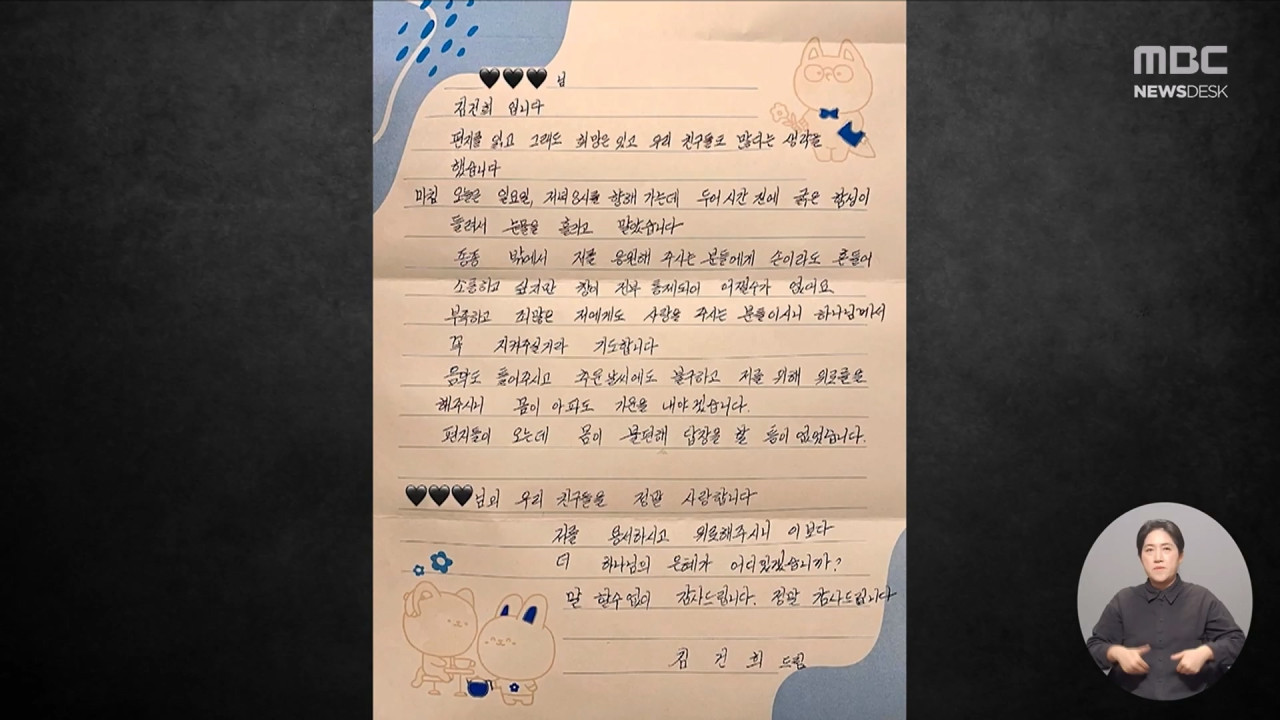 MBC
NEWSDESK
🖤🖤🖤 님
김건희 입니다
편지를 읽고 그래도 희망은 있고 우리 친구들도 많다는 생각을
했습니다
마침 오늘은 일요일, 저녁 8시를 향해 가는데 두어시간 전에 굵은 함성이
들려서 눈물을 흘리고 말았습니다
종종 밖에서 저를 응원해 주시는 분들에게 손이라도 흔들어
소통하고 싶지만 창이 전부 통제되어 어쩔수가 없어요
부족하고 죄많은 저에게도 사랑을 주시는 분들이시니 하나님께서
꼭 지켜주실거라 기도합니다
음악도 틀어주시고 추운 날씨에도 불구하고 저를 위해 위로를
해주시니 몸이 아파도 기운을 내야 겠습니다.
편지들이 오는데 몸이 불편해 답장을 할 틈이 없었습니다.
🖤🖤🖤님의 우리 친구들을 정말 사랑합니다
저를 용서하시고 위로해주시니 이보다
더 하나님의 은혜가 어디있겠습니까?
말 할수없이 감사드립니다. 정말 감사드립니다
김 건 희 드림